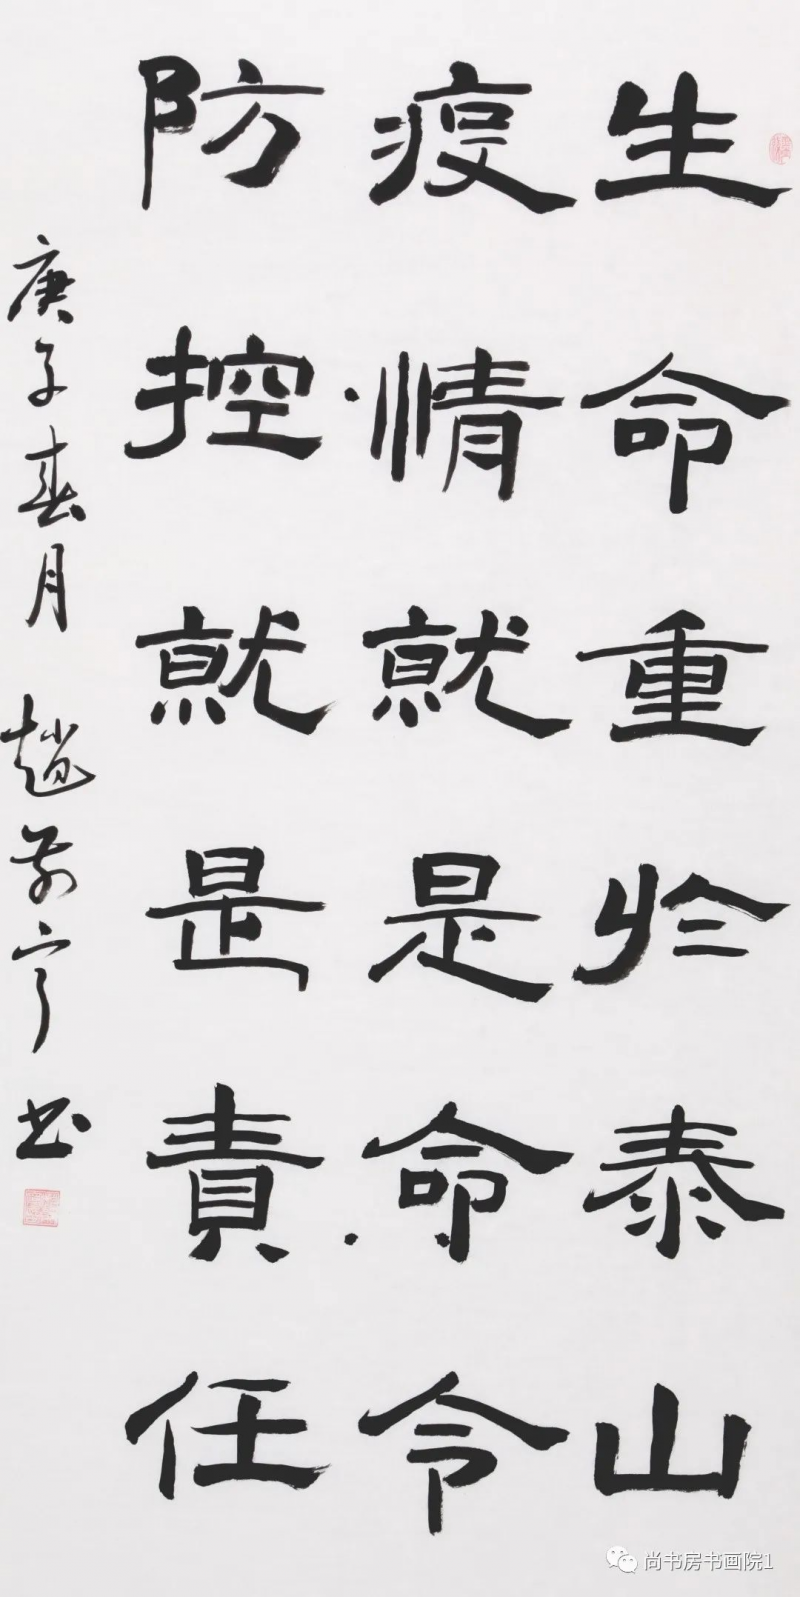 生命重於泰山
疫情就是命令
防控就是責任
庚子春月 趙前寧书
尚书房书画院1